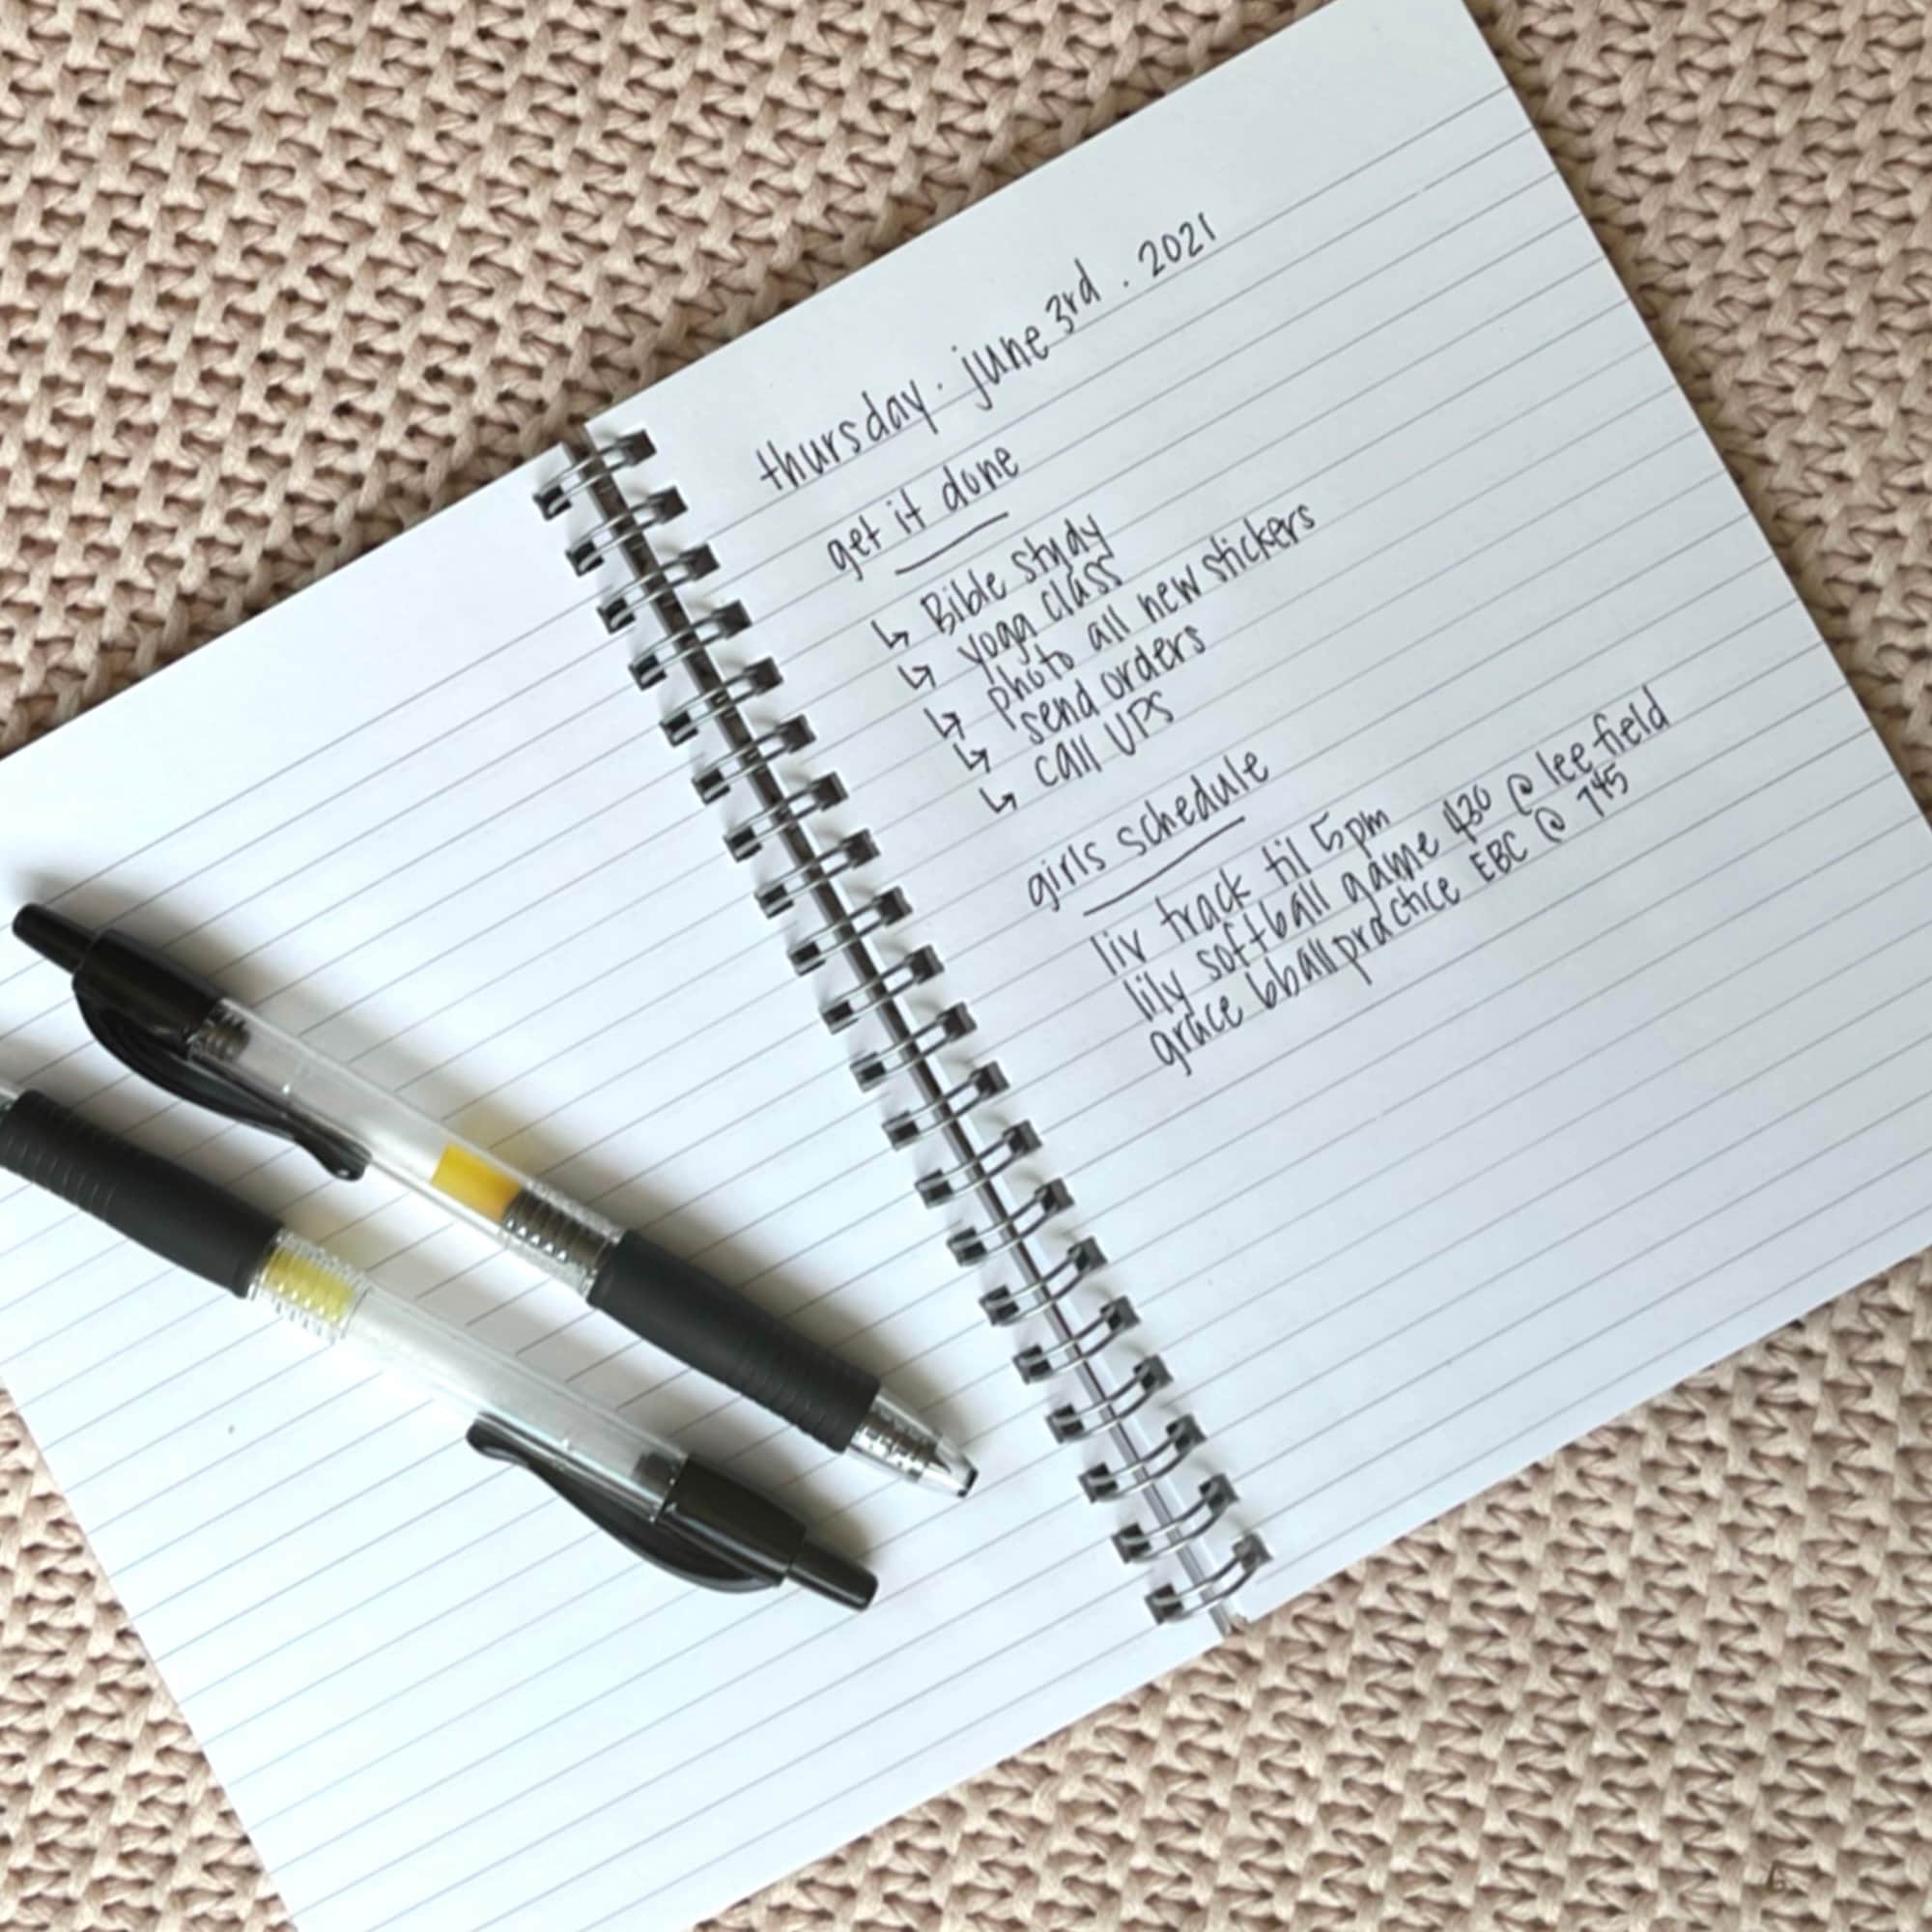 thursday. june 3rd. 2021
get it done
↳ Bible study
↳ yoga class
↳ photo all new stickers
↳ send orders
↳ call UPS
girls schedule
liv track til 5pm
lily softball game 430 @ lee field
grace bball practice EBC @ 745